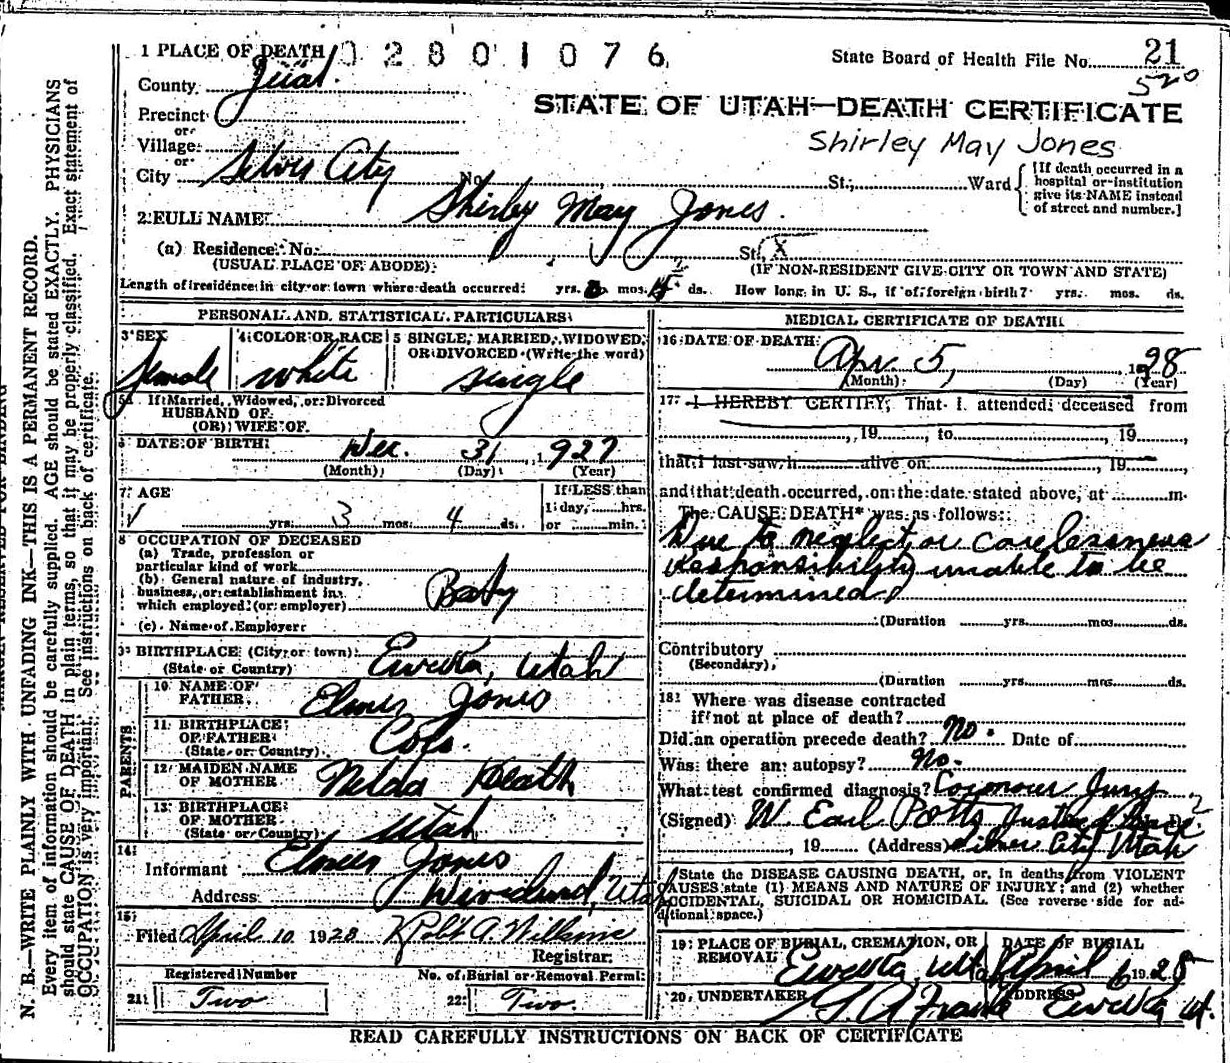 1 PLACE OF DEATH 02801076 State Board of Health File No. 21
520
County Juab.
STATE OF UTAH—DEATH CERTIFICATE
Precinct
or
Shirley May Jones
Village
or
City Silver City No. St.; Ward
[If death occurred in a hospital or institution give its NAME instead of street and number.]
2 FULL NAME Shirley May Jones.
(a) Residence. No. St. X
(USUAL PLACE OF ABODE) (IF NON-RESIDENT GIVE CITY OR TOWN AND STATE)
Length of residence in city or town where death occurred yrs. mos. ds. How long in U. S., if of foreign birth? yrs. mos. ds.
PERSONAL AND STATISTICAL PARTICULARS
3 SEX 4 COLOR OR RACE 5 SINGLE, MARRIED, WIDOWED,
OR DIVORCED (Write the word)
female white single
5a If Married, Widowed, or Divorced
HUSBAND OF
(OR) WIFE OF
6 DATE OF BIRTH Dec. 31 1927
(Month) (Day) (Year)
7 AGE If LESS than
1 day, hrs.
yrs. 3 mos. 4 ds. or min.
8 OCCUPATION OF DECEASED
(a) Trade, profession or
particular kind of work
(b) General nature of industry,
business, or establishment in
which employed (or employer) Baby
(c) Name of Employer
9 BIRTHPLACE (City or town) Eureka, Utah
(State or Country)
PARENTS
10 NAME OF
FATHER Elmer Jones
11 BIRTHPLACE
OF FATHER Colo.
(State or Country)
12 MAIDEN NAME
OF MOTHER Nelda Heath
13 BIRTHPLACE
OF MOTHER
(State or Country) Utah
14
Informant Elmer Jones
Address Dividend, Utah
15
Filed April 10 1928 Robt A. Wilkins
Registrar
Registered Number No. of Burial or Removal Permit
21 Two 22 Two.
MEDICAL CERTIFICATE OF DEATH
16 DATE OF DEATH
Apr. 5, 1928
(Month) (Day) (Year)
17 I HEREBY CERTIFY, That I attended deceased from
, 19 , to , 19
that I last saw h alive on , 19
and that death occurred, on the date stated above, at m.
The CAUSE DEATH* was as follows:
Due to neglect or carelessness
responsibility unable to be
determined
(Duration yrs. mos. ds.
Contributory
(Secondary)
(Duration yrs. mos. ds.
18 Where was disease contracted
if not at place of death?
Did an operation precede death? No. Date of
Was there an autopsy? No.
What test confirmed diagnosis? Coronour Jury
(Signed) W. Earl Potts Justice of Peace
, 19 (Address) Silver City Utah
State the DISEASE CAUSING DEATH, or, in deaths from VIOLENT
CAUSES state (1) MEANS AND NATURE OF INJURY; and (2) whether
ACCIDENTAL, SUICIDAL OR HOMICIDAL. (See reverse side for ad-
ditional space.)
19 PLACE OF BURIAL, CREMATION, OR DATE OF BURIAL
REMOVAL Eureka, Utah April 6 1928
20 UNDERTAKER ADDRESS
Eureka Ut.
READ CAREFULLY INSTRUCTIONS ON BACK OF CERTIFICATE
N. B.—WRITE PLAINLY WITH UNFADING INK—THIS IS A PERMANENT RECORD.
Every item of information should be carefully supplied. AGE should be stated EXACTLY. PHYSICIANS
should state CAUSE OF DEATH in plain terms, so that it may be properly classified. Exact statement of
OCCUPATION is very important. See instructions on back of certificate.